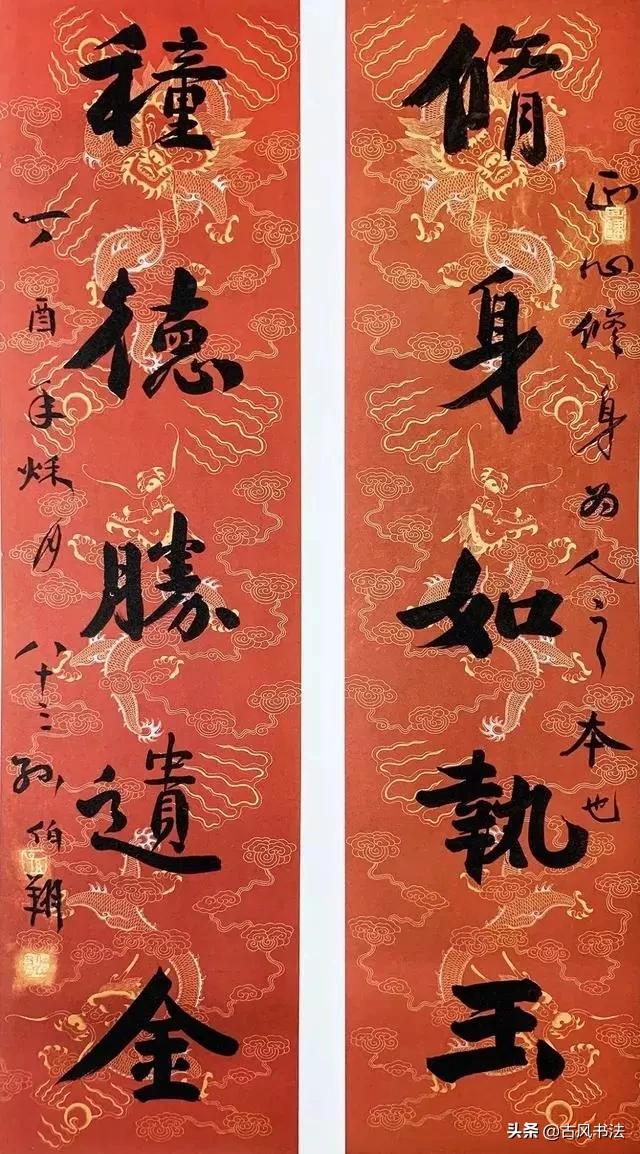 正心修身为人之本也
脩身如執玉
種德勝遺金
丁酉年秌月 八十三孙伯翔
头条 @古风书法